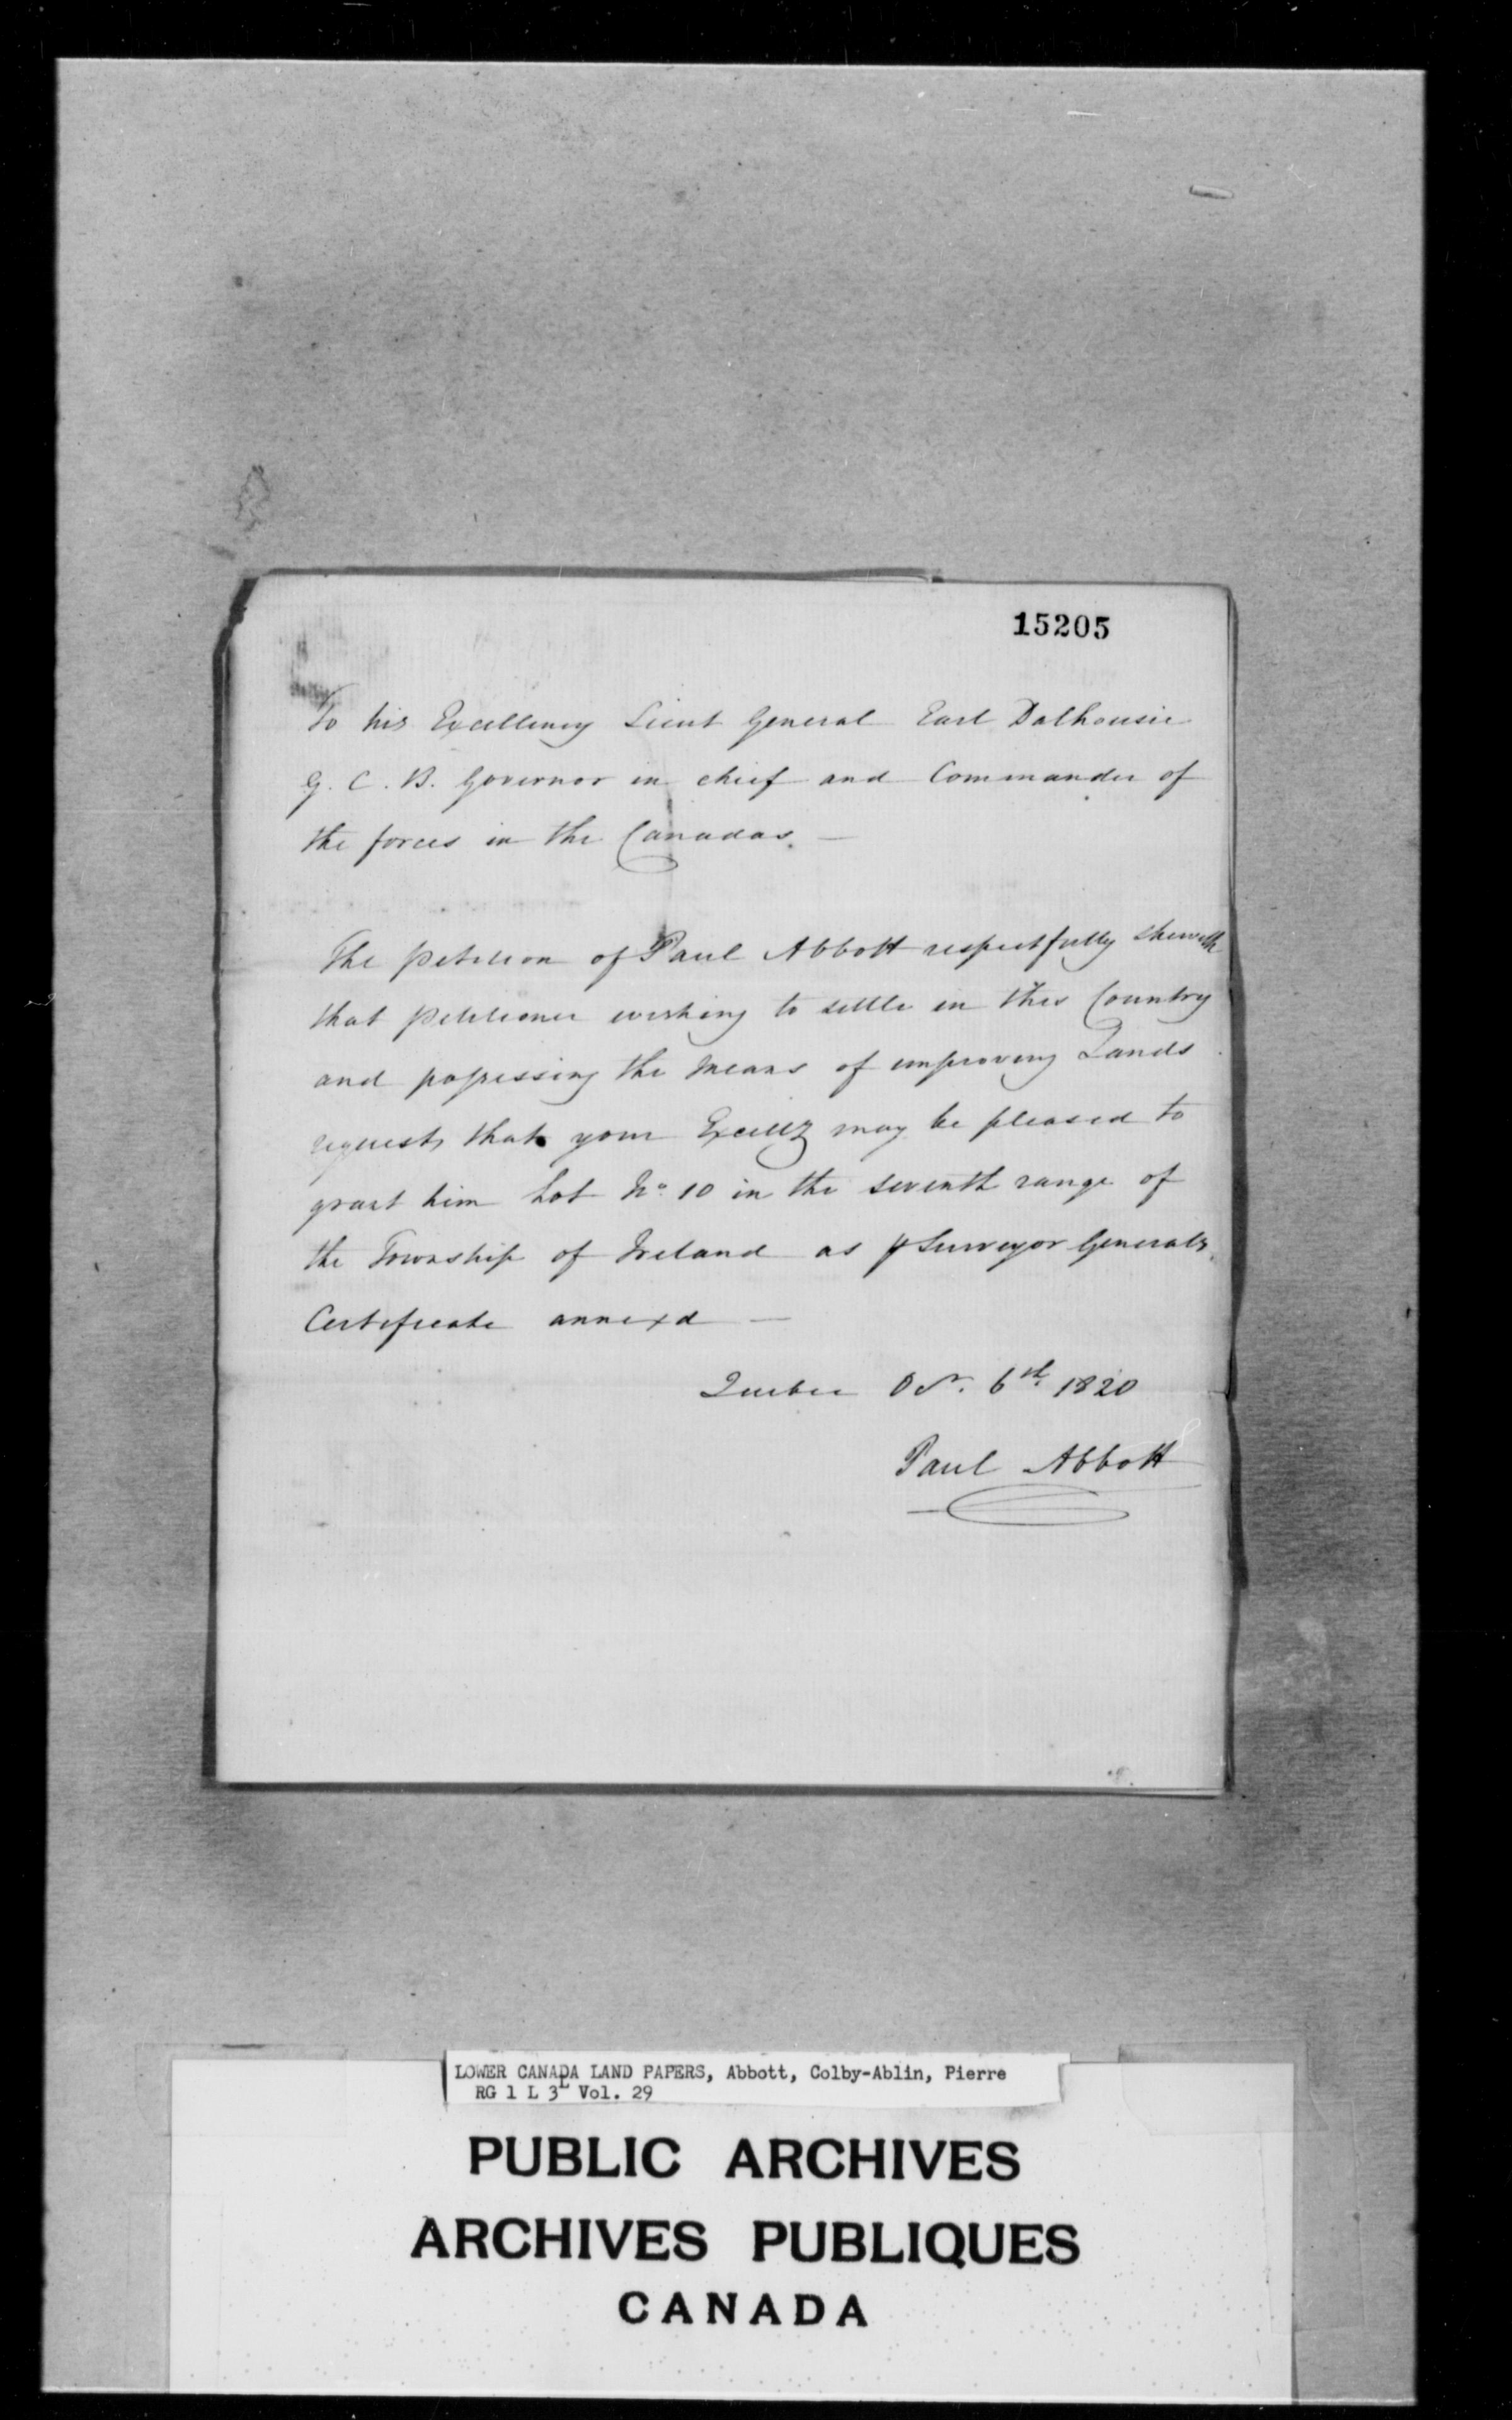 15205
To his Excellency Lieut General Earl Dalhousie
G. C. B. Governor in chief and Commander of
the forces in the Canadas. —
The petition of Paul Abbott respectfully sheweth
that petitioner wishing to settle in this Country
and possessing the means of improving Lands
requests that your Excellz may be pleased to
grant him Lot No. 10 in the seventh range of
the Township of Ireland as ⅌ Surveyor Generals
Certificate annexd —
Quebec Octr. 6th 1820
Paul Abbott
LOWER CANADA LAND PAPERS, Abbott, Colby-Ablin, Pierre
RG 1 L 3L Vol. 29
PUBLIC ARCHIVES
ARCHIVES PUBLIQUES
CANADA